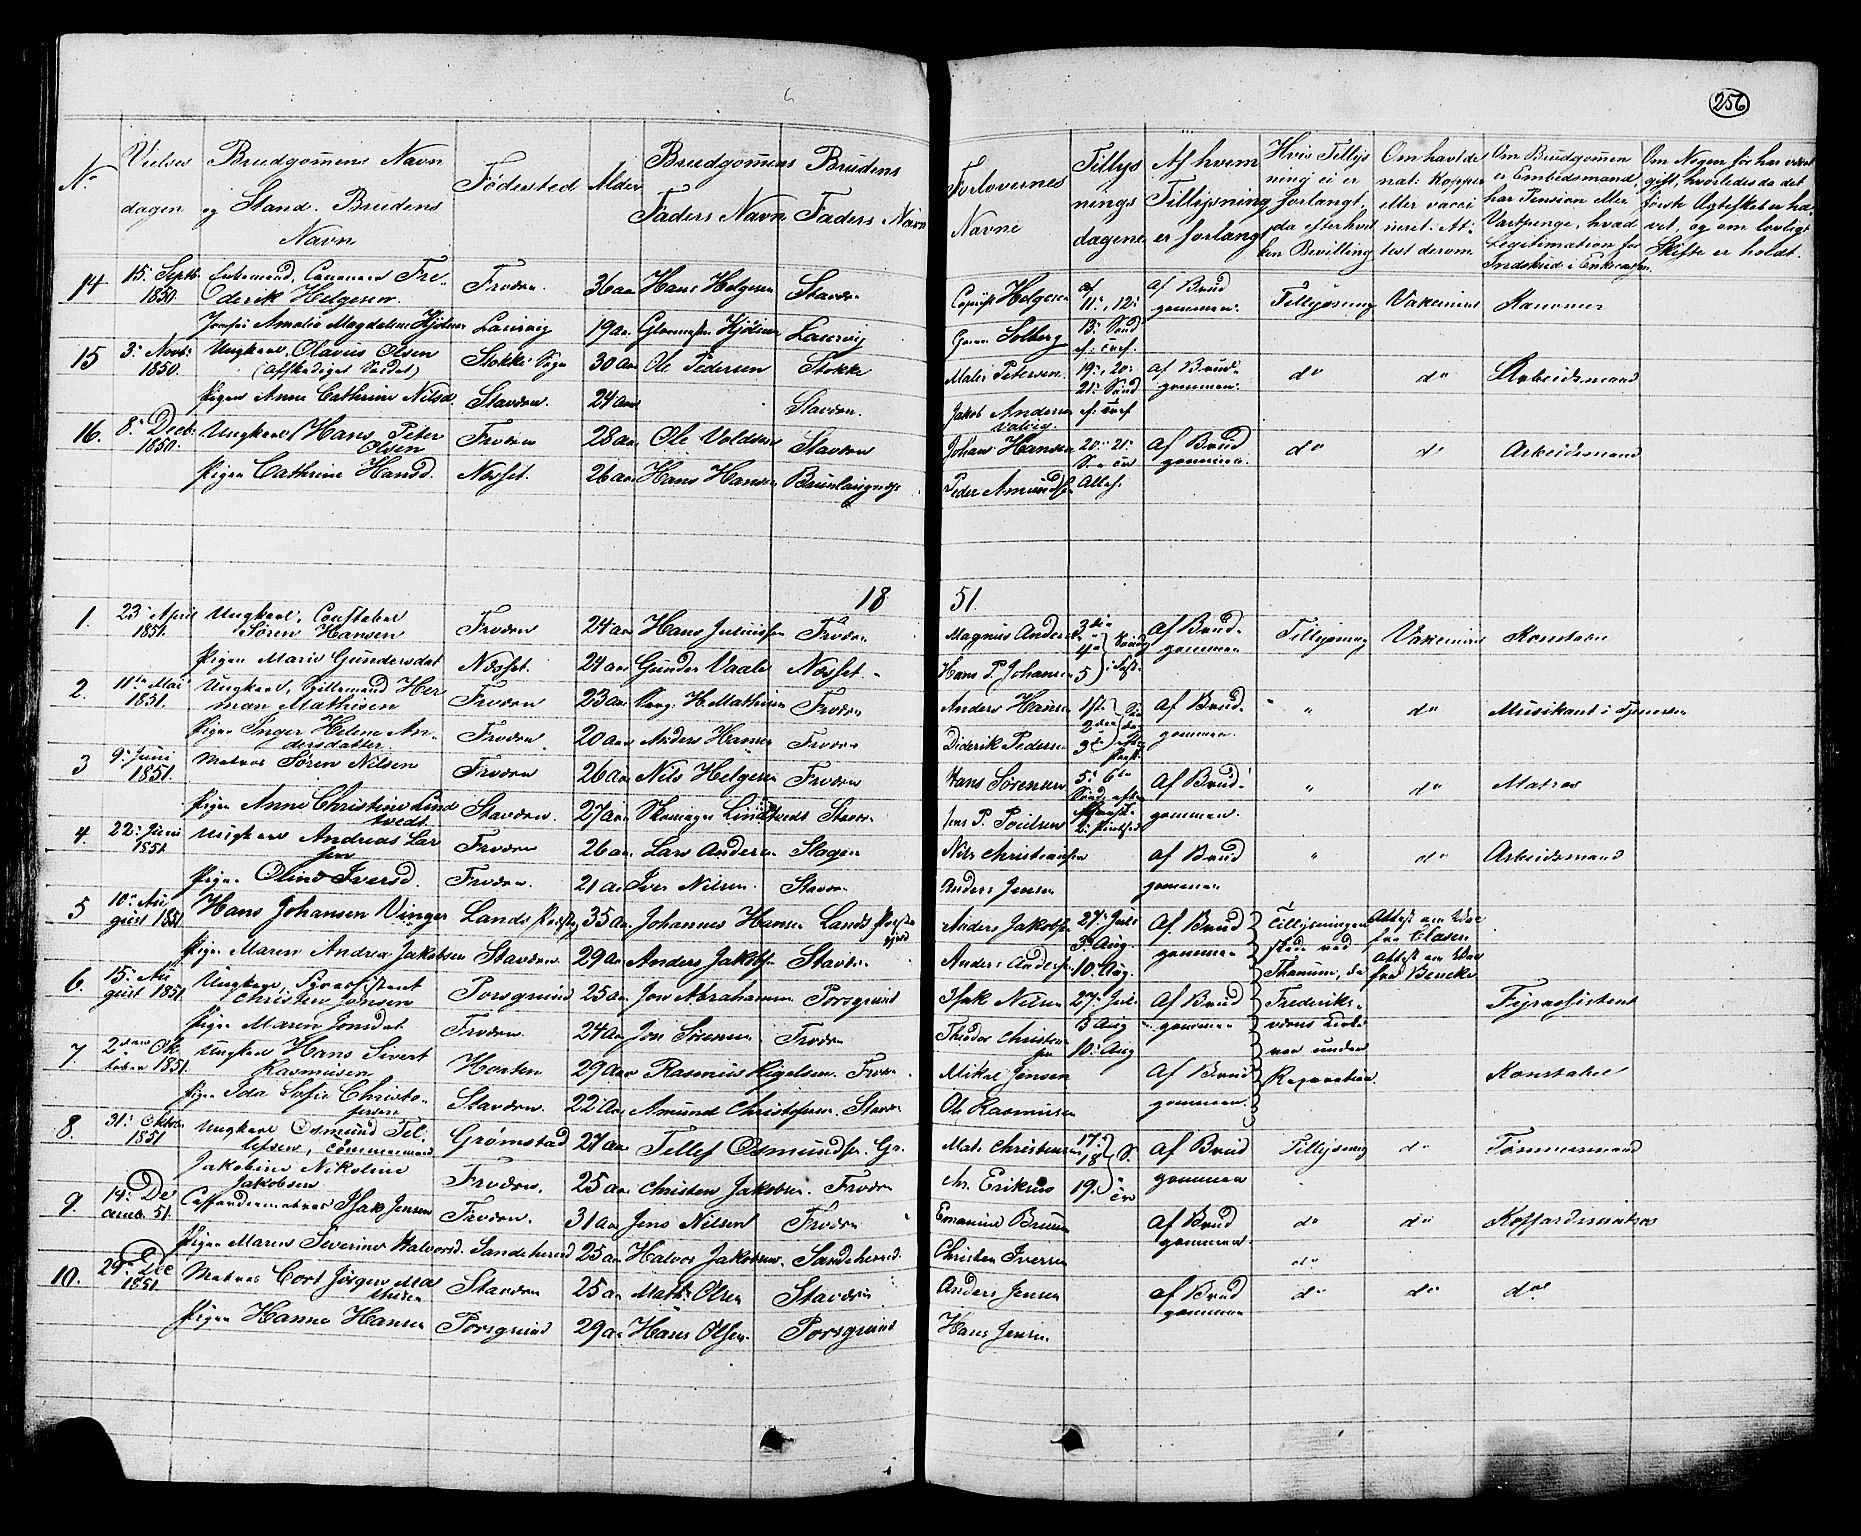 256
No
Vielses dagen
Brudgomens Navn og Stand. Brudens Navn
Fødersted
Alder
Brudgomens Faders Navn
Brudens Faders Navn
Forlovernes Navne
Tillysnings dagene
Af hvem Tillysning er forlangt
Hvis Tillysning ei er forlangt, da efter hvilken Bevilling
Om havt de nat: Kopper eller vaccineret. Attest derom
Om Brudgomen er Embedsmand, har Pension eller Vartpenge, hvad Legitimation for Indskud i Enkecassen
Om Nogen før har været gift, hvorledes da det første Ægteskab er hævet, og om lovligt Skifte er holdt.
14 15. Septb. 1850. Enkemand, Canoneer Frederik Helgesen. Fredvn. 36 aar Hans Helgesen Stavern Helgesen 11, 12. af Brudgommen. Tillysning Vakcineret Kanoner
Amalie Magdalene Laurvig 19 aar Laurvig Solberg 13. Sønd. ef.
15 3. Novb. 1850. Ungkarl. Olavus Olsen (Afskediget Soldat) Stokke Sogn 30 Aar Ole Pedersen Stokke Petersen 19. 20. 21. Sønd. af Brudgommen. do do Arbeidsmand
Pigen Anne Cathrine Nilsd. Stavern. 24 aar Stavern. Jakob Andersen
16. 8. Decb. 1850. Ungkarl Hans Peter Olsen Fredvn 28 aar Ole Stavern Johan Hansen 20. 21. af Brudgommen. do do Arbeidsmand
Pigen Cathrine Hansd. Næsset. 26 aar Hans Hansen Peder Amundsen
18 51.
1. 23. April 1851. Ungkarl, Constabel Søren Hansen Fredvn 24 aar Hans Fredvn Magnus Anders 3die 4de 5 af Brudgommen Tillysning Vakcineret Konstabel
Pigen Maria Gundersdat Næsset. 24 aar Gunder Vaale Næsset Hans P. Johansen
2. 11te Mai 1851. Ungkarl, Spillemand Herman Mathisen Fredvn 23 aar H. Mathisen Fredvn Anders Hansen 1ste 2den 3die af Brudgommen. " do Musikant i Tjenesten
Pigen Inger Helene Andersdatter Fredvn. 20 aar Anders Hansen Fredvn Diderik Pedersen
3 9. Juni 1851. Matros Søren Nilsen Fredvn 26 aar Nils Helgesen Fredvn Hans Sørensen 5. 6te Sønd. af Brudgommen. " do Matros
Pigen Anne Christine Lindtvedt Stavern. 27 aar Lindtvedt Stavern Jens P. Poulsen
4. 22. Juni 1851. Ungkarl Andreas Larsen Fredvn 26 aar Lars Andersen Slagen Nils Christiansen af Brudgommen " do Arbeidsmand
Pigen Oline Iversd. Fredvn. 21 aar Iver Nilsen. Stavern Anders Jensen
5 10. August 1851 Hans Johansen Vinger Lands Præstegj 35 aar Johannes Hansen Lands Præstegjeld Anders Jakobsen 27. Juli af Brudgommen Tillysningen skede ved Thanum, da Frederiksværns Kirke var under Reparation. Attest om Vac fra Clasen
Pigen Maren Andrea Jakobsen Stavern 29 aar Anders Jakobsen Stavern Anders Andersen 3. Aug. 10. Aug. Attest om Vac fra Bencke
6. 15. August 1851. Ungkarl, Fyrassistent Christen Jonsen Porsgrund 25 aar Jon Abrahamsen Porsgrund Isak Nilsen 27. Juli af Brudgommen Fyrassistent
Pigen Maren Jonsdat Fredvn. 24 aar Jon Sørensen Fredvn Theodor Christensen 3 Aug 10. Aug
7. 2den Oktober 1851. Ungkarl Hans Sivert Rasmussen Horten 29 aar Rasmus Fredvn Mikal Jensen af Brudgommen. Konstabel
Pigen Ida Sofie Christofersen Stavern. 22 aar Amund Christofersen. Stavern Ole Rasmussen
8. 31. Oktober 1851 Ungkarl Osmund Tellefsen, Tømmermand Grømstad 27 aar Tellef Osmundsen Gr. Christensen 17. 18 af Brudgommen Tillysning do Tømmermand
Jakobine Nikoline Jakobsen Fredvn. 25 aar Christen Jakobsen Fredvn Eriksen 19.
9. 14. December 51. Coffardimatros Isak Jensen Fredvn. 31 aar Jens Nilsen Fredvn Bruun af Brudgommen. do do Koffardimatros
Pigen Maren Severine Halvorsd. Sandeherred 25 aar Halvor Jakobsen. Sandeherred. Christen Iversen do
10. 29. Dec 1851. Matros Cort Jørgen Mathisen Stavern 25 aar Math. Olsen Stavern Anders Jensen af Brudgommen do do do
Pigen Hanne Hansen Porsgrund 29 aar Hans Olsen. Porsgrund Hans Jensen.